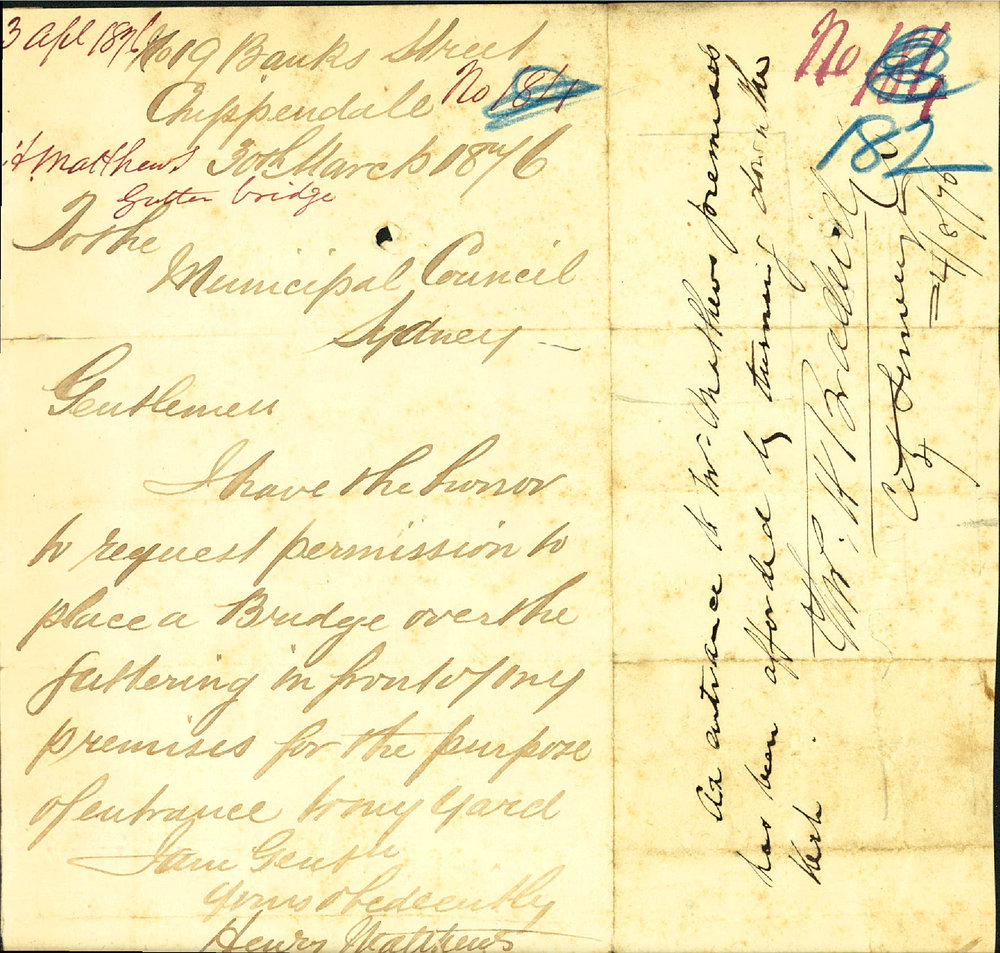 3 Apl 1876
No 19 Banks Street
Chippendale
No 184
H Matthews
30th March 1876
Gutter bridge
To the
Municipal Council
Sydney
Gentlemen
I have the honor
to request permission to
place a Bridge over the
guttering in front of my
premises for the purpose
of entrance to my yard
I am Gentn
Yours obediently
Henry Matthews
No 184
182
An entrance to Mr Matthews premises
has been afforded by turning down the
kerb.
Bradford
4/8/76